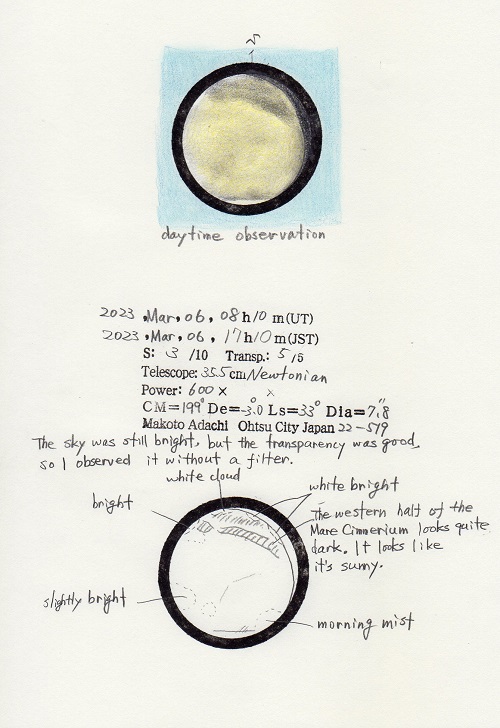 S
daytime observation
2023 ,Mar, 06, 08h10m(UT)
2023 ,Mar, 06, 17h10m(JST)
S: 3 /10 Transp.: 5 /5
Telescope: 35.5cm Newtonian
Power: 600 × ×
CM=199° De=-3.0° Ls=33° Dia=7.″8
Makoto Adachi Ohtsu City Japan 22-579
The sky was still bright, but the transparency was good,
so I observed it without a filter.
white cloud
white bright
bright
The western half of the
Mare Cimmerium looks quite
dark. It looks like
it's sunny.
slightly bright
morning mist